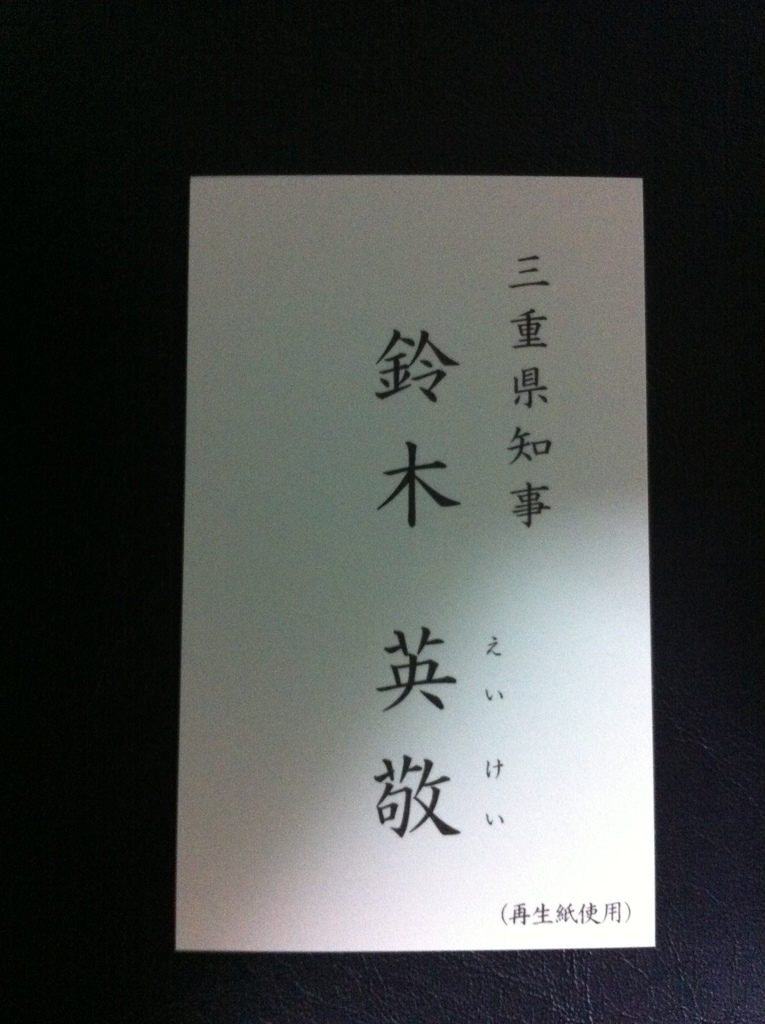 三重県知事
鈴木 英敬
えいけい
(再生紙使用)